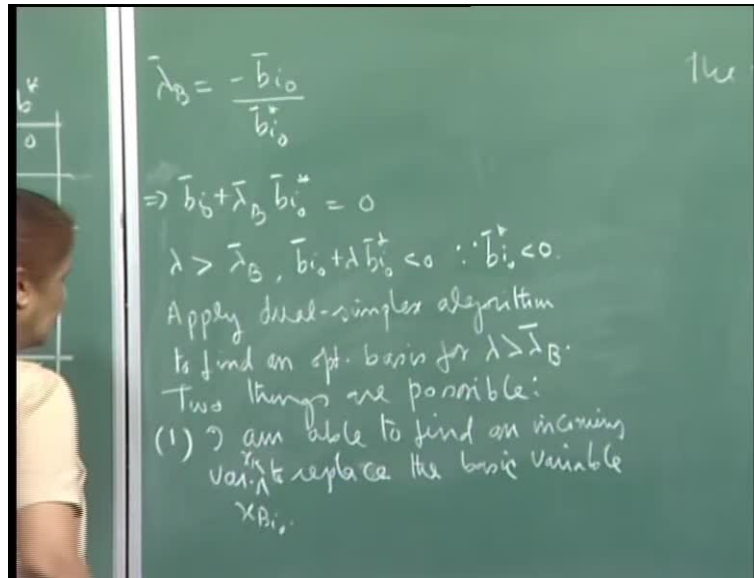 b*
0
λ̄_B = -b̄_{i_0} / b̄*_{i_0}
The
⇒ b̄_{i_0} + λ̄_B b̄*_{i_0} = 0
λ > λ̄_B, b̄_{i_0} + λ b̄*_{i_0} < 0 ∵ b̄*_{i_0} < 0.
Apply dual-simplex algorithm
to find an opt. basis for λ > λ̄_B.
Two things are possible:
(1) I am able to find an incoming
var. to replace the basic variable
x_{B_{i_0}}.